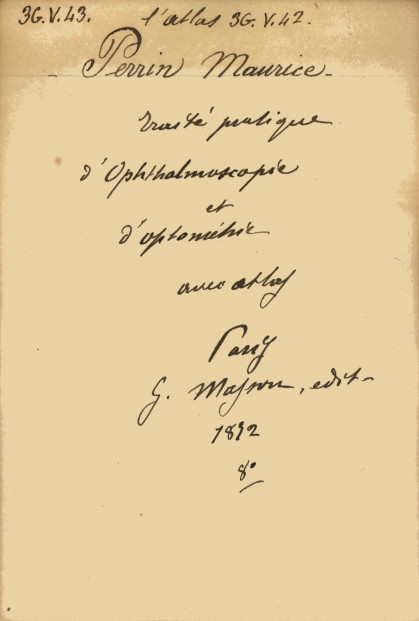 3G.V.43. l'atlas 3G.V.42.
Perrin Maurice
traité pratique
d'Ophthalmoscopie
et
d'optométrie
avec atlas
Paris
G. Masson, edit
1872
8°